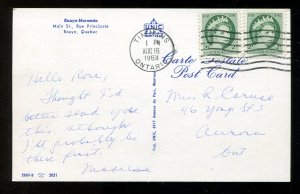 Rouyn-Noranda
Main St., Rue Principale
Rouyn, Quebec
UNIC
TIMMINS
1 PM
AUG 16
1963
ONTARIO
Carte Postale
Post Card
Hello Rose,
Thought I'd
better send you
this, although
I'll probably be
there first.
Miss R. Caruso
46 Yonge St
Aurora
Ont